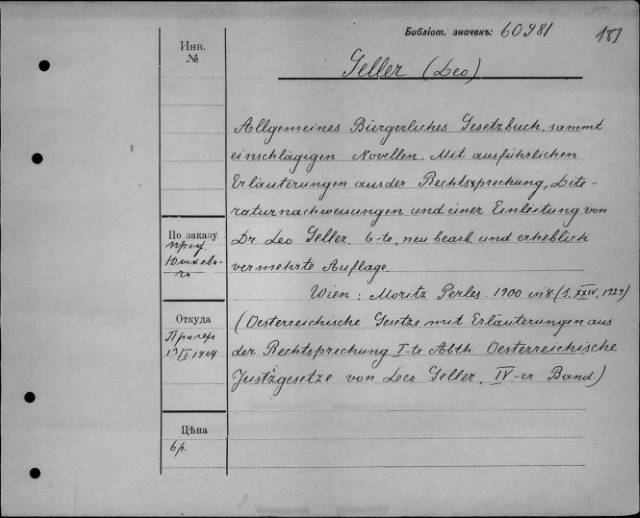 Библіот. значекъ: 60981
181
Инв.
№
Geller (Leo)
Allgemeines Bürgerliches Gesetzbuch, sammt
einschlägigen Novellen. Mit ausführlichen
Erläuterungen aus der Rechtsprechung, Lite-
raturnachweisungen und einer Einleitung von
Dr. Leo Geller. 6-te, neu bearb. und erheblich
vermehrte Auflage.
Wien: Moritz Perles. 1900 in 8 (S. XXIV, 1229)
(Oesterreichische Gesetze mit Erläuterungen aus
der Rechtsprechung I-te Abth Oesterreichische
Justizgesetze von Leo Geller. IV-er Band)
По заказу
проф.
Юшкеви-
ча
Откуда
Прагер
1904
Цѣна
6 р.